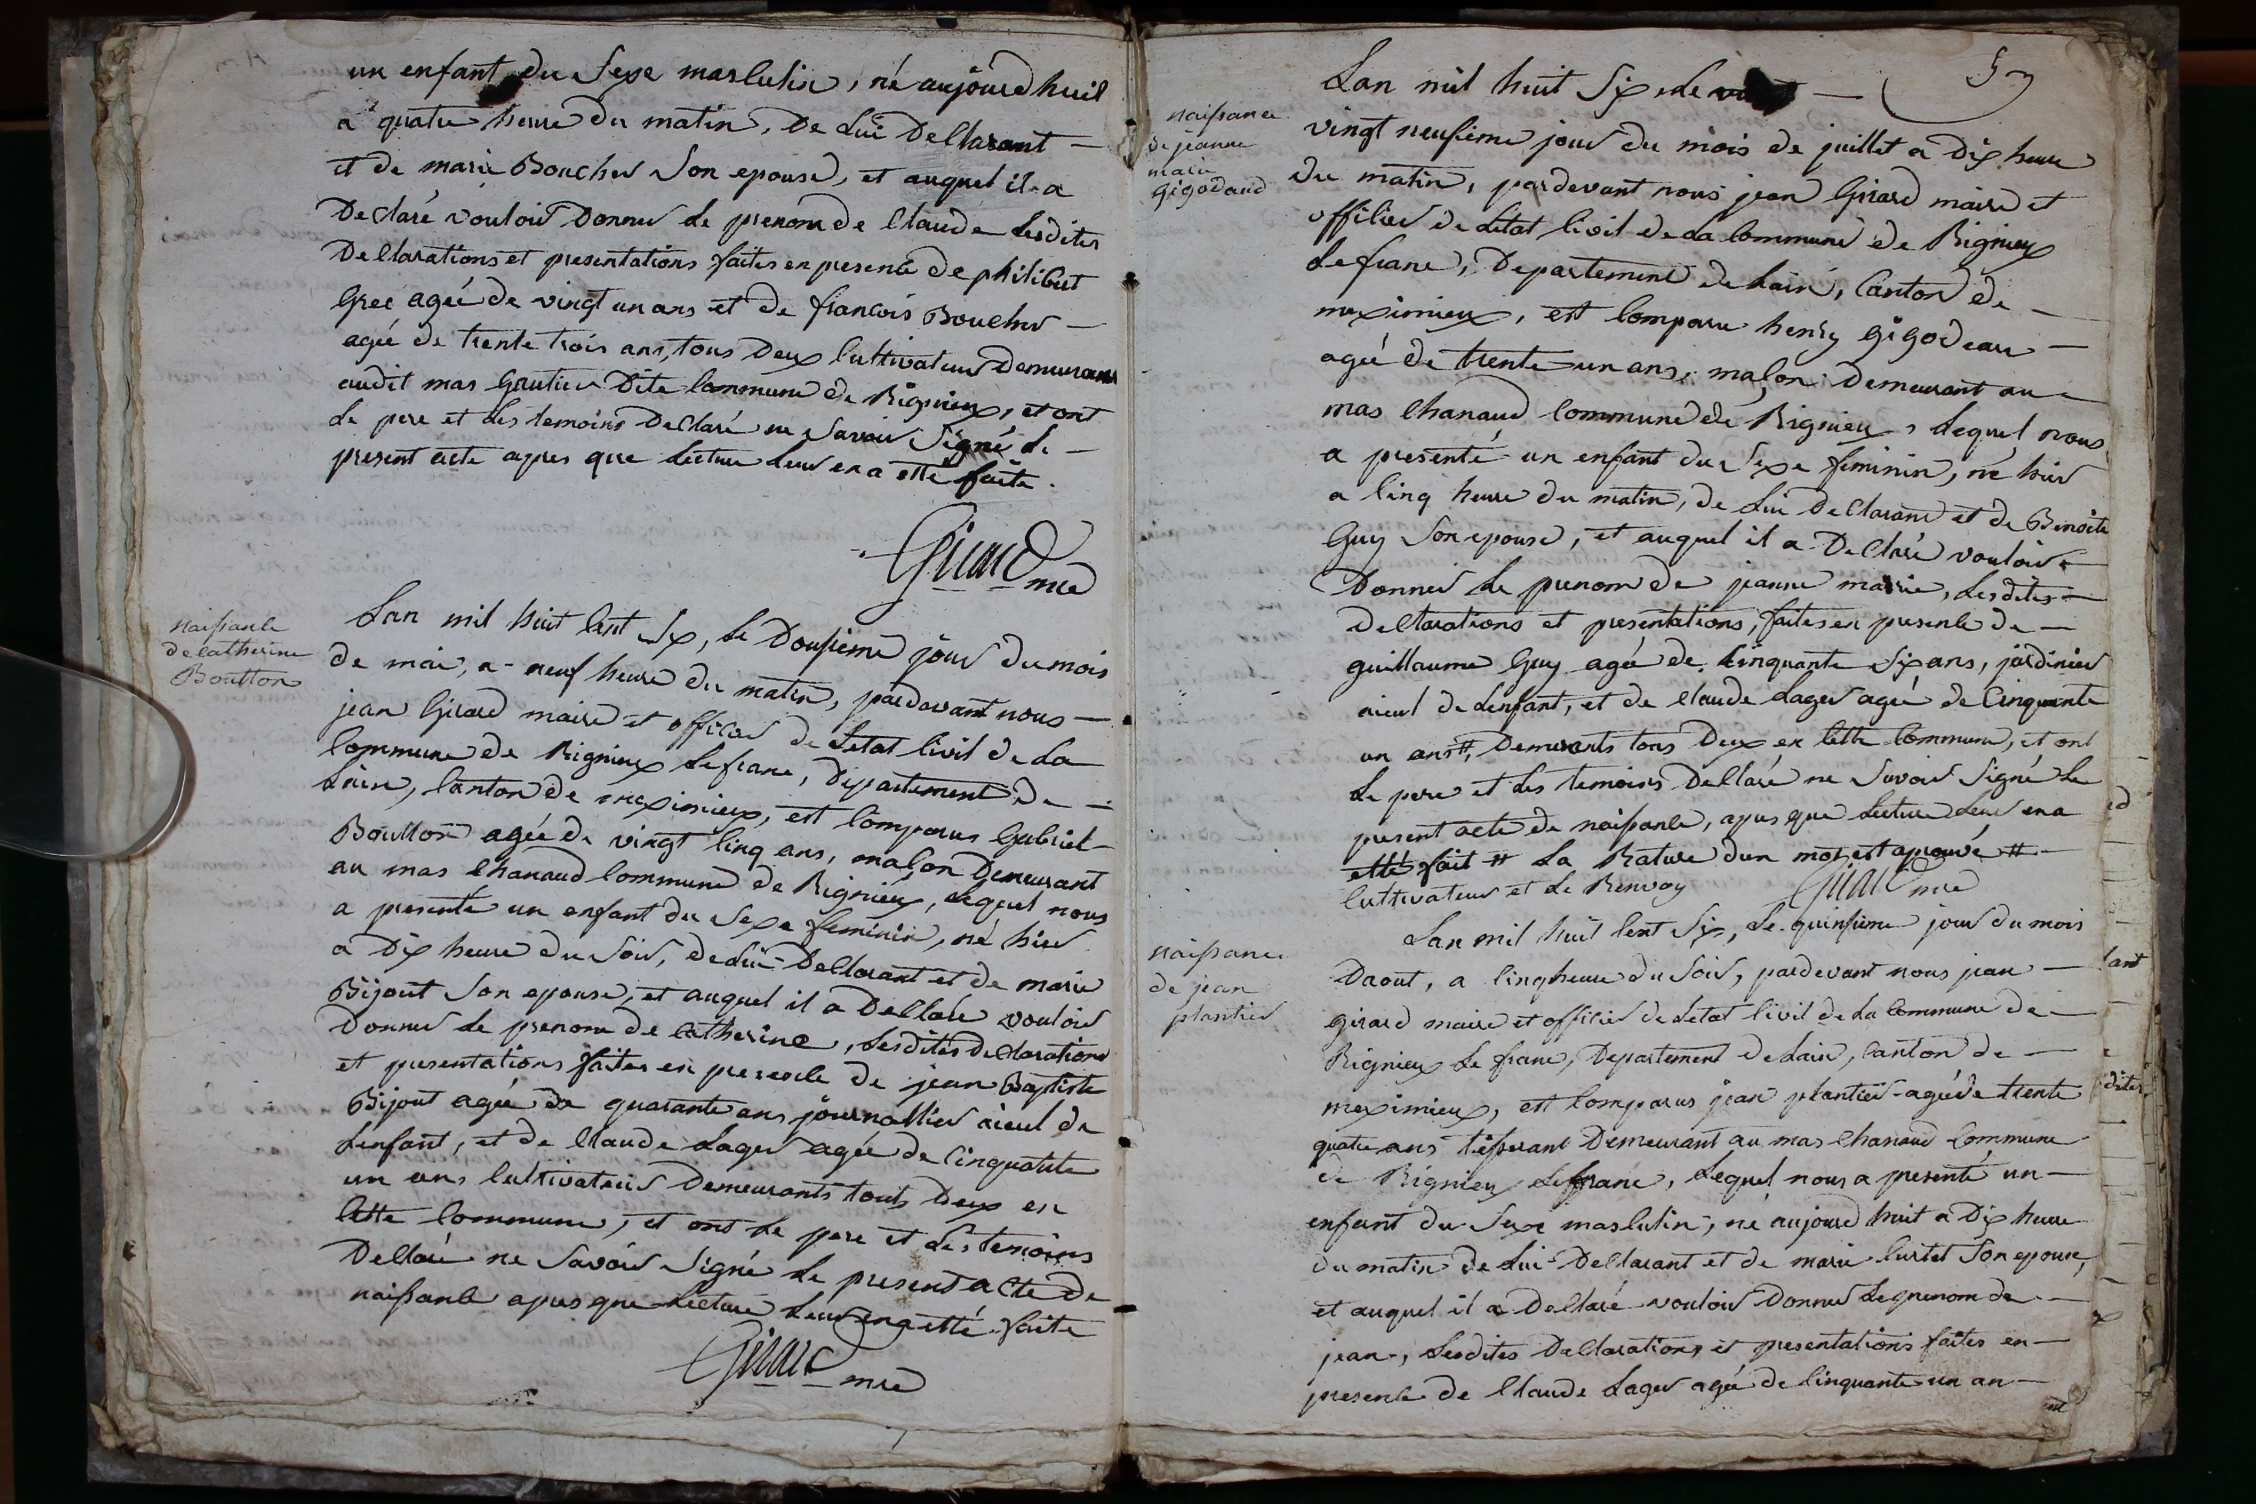 un enfant du Sexe masculin, né aujourd huit
a quatre heure du matin, De Lui Declarant —
et de marie Boucher Son epouse, et auquel il a
Declaré vouloir Donner Le prenom de Claude Lesdites
Declarations et presentations faites en presence de philibert
Gree ageé de vingt un ans et de francois Boucher —
ageé de trente trois ans, tous Deux Cultivateurs Demeurans
audit mas Grutier Dite Commune de Rignieux, et ont
Le pere et Les temoins Declaré ne Savoir Signé Le —
present acte apres que Lecture Leur en a etté faite.
Girard mre
naissance
de catherine
Boutton
Lan mil huit Cent Six, Le Douzieme jour du mois
de mai, a neuf heure du matin, pardevant nous —
jean Girard maire et officier de Letat Civil de La
Commune de Rignieux Lefranc, Departement de —
Lain, Canton de meximieux, est Comparus Gabriel
Boutton ageé de vingt Cinq ans, maçon Demeurant
au mas Chanaud Commune de Rignieux, Lequel nous
a presenté un enfant du Sexe feminin, né hier
a Dix heure du Soir, de Lui Declarant et de marie
Bijout Son epouse, et auquel il a Declaré vouloir
Donner Le prenom de catherine, Lesdites declarations
et presentations faites en presence de jean Baptiste
Bijout ageé de quarante ans journallier aieul de
Lenfant, et de Claude Lager ageé de Cinquante
un ans Cultivateurs Demeurants touts Deux en
Cette Commune, et ont Le pere et Les temoins
Declaré ne Savoir Signé Le present acte De
naissance apres que Lecture Leur en a etté faite
Girard mre
5
naissance
de jeanne
marie
gigodaud
Lan mil huit Six, Le —
vingt neufieme jour du mois de juillet a Dix heure
du matin, pardevant nous jean Girard maire et
officier de Letat Civil de La Commune de Rignieux
Lefranc, Departement de Lain, Canton de —
meximieux, est Comparu henry gigodeau —
ageé de trente un ans, maçon Demeurant au —
mas Chanaud Commune de Rignieux, Lequel nous
a presenté un enfant du Sexe feminin, né hier
a Cinq heure du matin, de Lui Declarant et de Benoite
Guy Son epouse, et auquel il a Declaré vouloir
Donner Le prenom de jeanne marie, Lesdites —
declarations et presentations, faites en presence de —
guillaume Guy ageé de Cinquante Six ans, jardinier
aieul de Lenfant, et de Claude Lager ageé de Cinquante
un ans #, Demeurants tous Deux en Cette Commune, et ont
Le pere et Les temoins Declaré ne Savoir Signé Le
present acte de naissance, apres que Lecture Leur en a
etté fait # La Rature dun mot est aprouvé #
Cultivateur et Le Renvoy Girard mre
naissance
de jean
plantier
Lan mil huit Cent Six, Le quinzieme jour du mois
Daout, a Cinq heure du Soir, pardevant nous jean —
girard maire et officier de Letat Civil de La Commune de —
Rignieux Le franc, Departement de Lain, Canton de —
meximieux, est Comparus jean plantier ageé de trente
quatre ans tisserant Demeurant au mas Chanaud Commune
de Rignieux Lefranc, Lequel nous a presenté un —
enfant du Sexe masculin, né aujourd huit a Dix heure
du matin de Lui Declarant et de marie Curtet Son epouse,
et auquel il a Declaré vouloir Donner Le prenom de —
jean, Lesdites Declarations et presentations faites en —
presence de Claude Lager ageé de Cinquante un an —